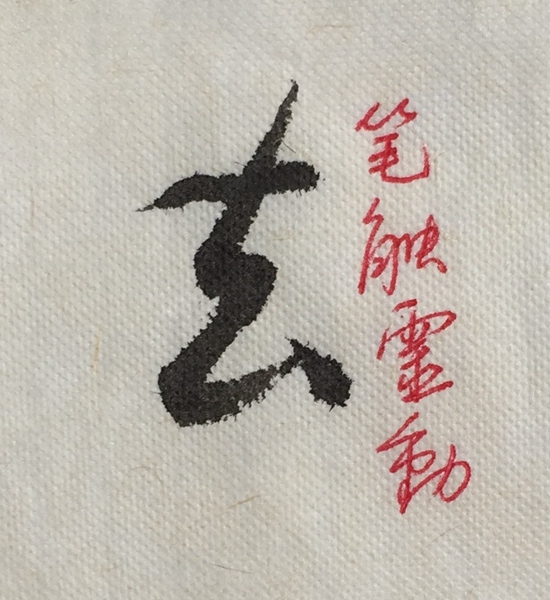 去
笔触靈動